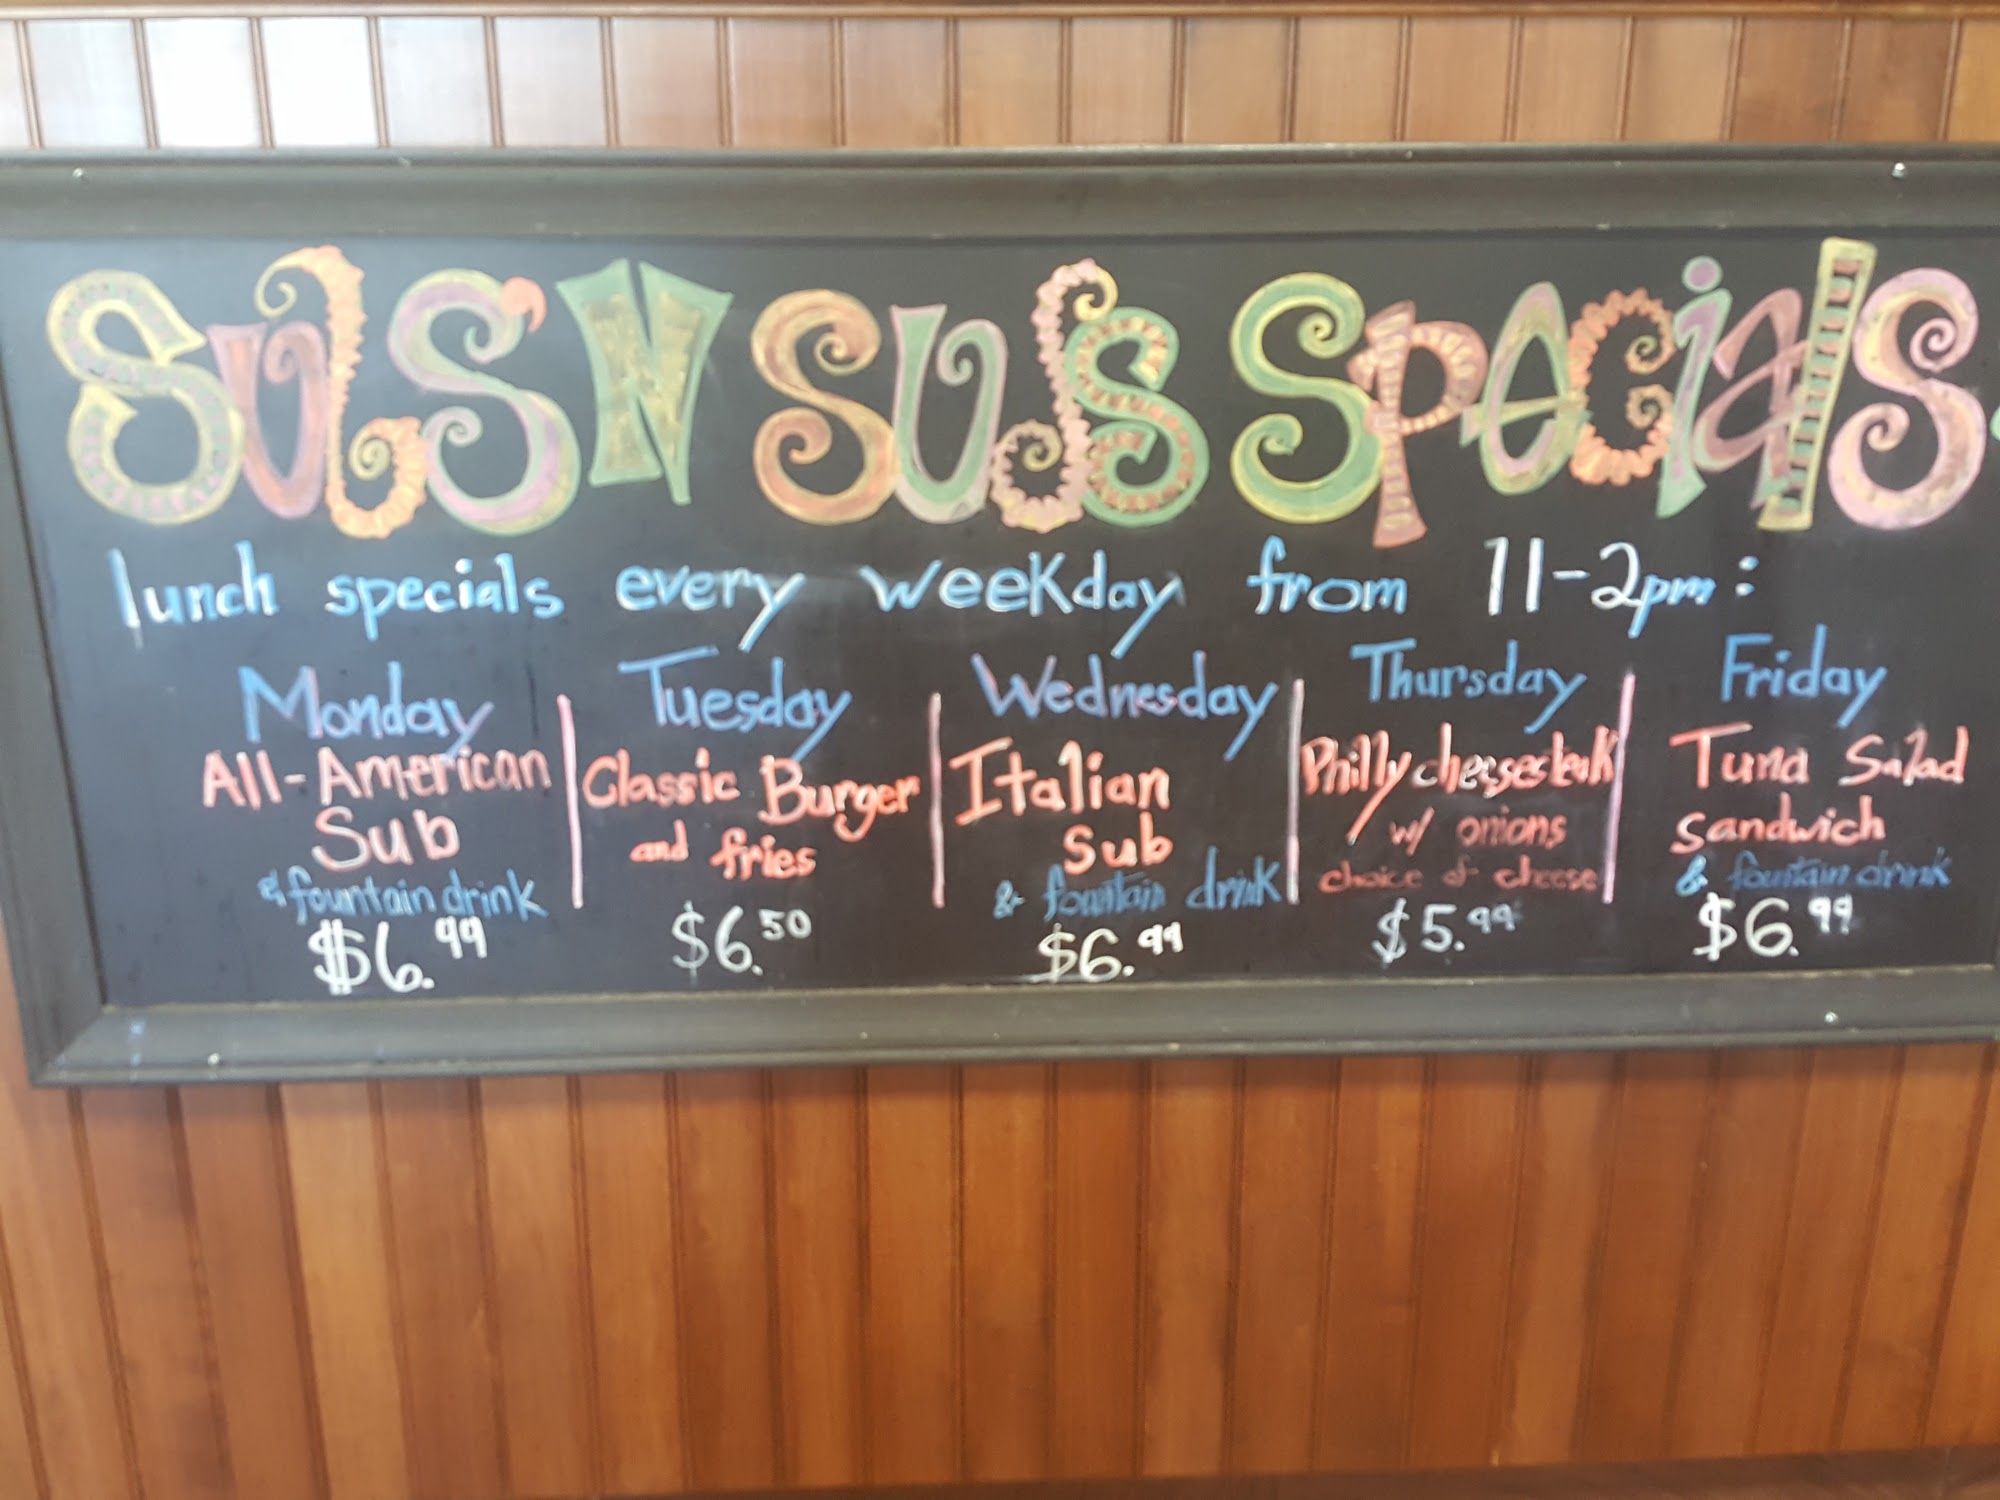 Subs'N Suds Specials
lunch specials every weekday from 11-2pm:
Monday
All-American
Sub
& fountain drink
$6.99
Tuesday
Classic Burger
and fries
$6.50
Wednesday
Italian
Sub
& fountain drink
$6.99
Thursday
Philly cheesesteak
w/ onions
choice of cheese
$5.99
Friday
Tuna Salad
Sandwich
& fountain drink
$6.99